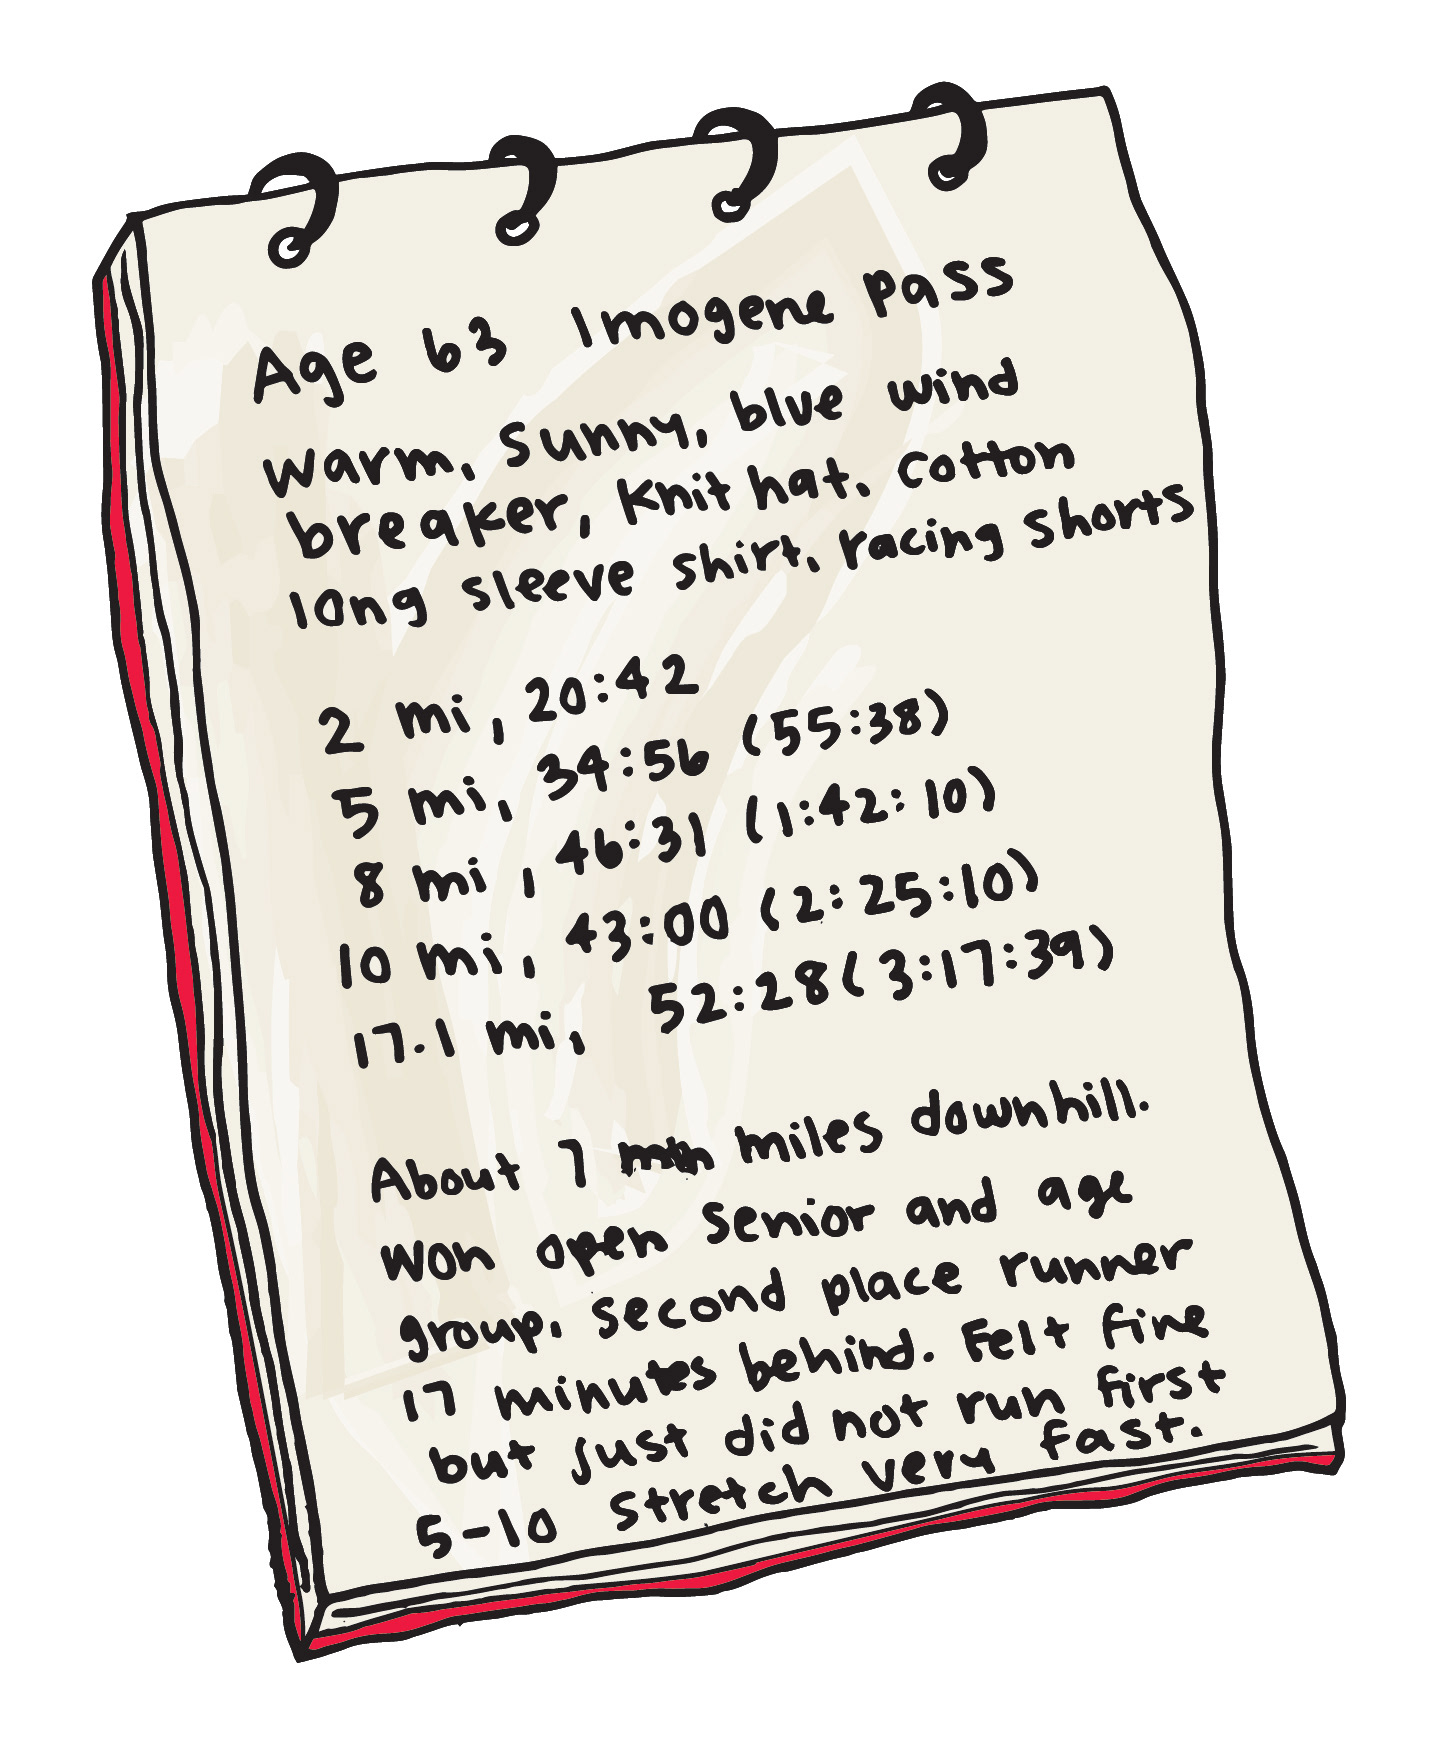 Age 63 Imogene Pass
Warm, sunny, blue wind
breaker, knit hat, cotton
long sleeve shirt, racing shorts
2 mi, 20:42
5 mi, 34:56 (55:38)
8 mi, 46:31 (1:42:10)
10 mi, 43:00 (2:25:10)
17.1 mi, 52:28 (3:17:39)
About 7 miles downhill.
Won open senior and age
group, second place runner
17 minutes behind. Felt fine
but just did not run first
5-10 stretch very fast.